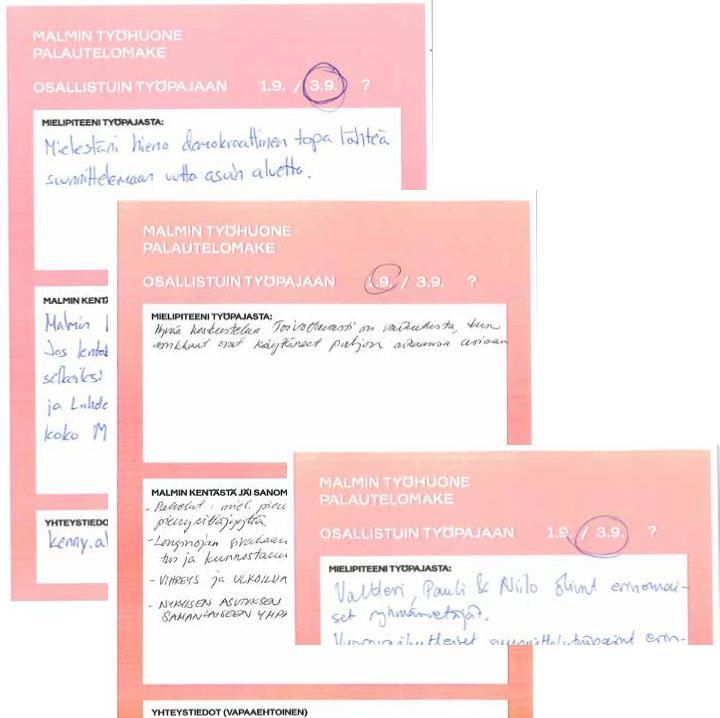 MALMIN TYÖHUONE
PALAUTELOMAKE
OSALLISTUIN TYÖPAJAAN 1.9. / 3.9. ?
MIELIPITEENI TYÖPAJASTA:
Mielestäni hieno demokraattinen tapa lähteä
suunnittelemaan uutta asuin aluetta.
MALMIN KENT
Malmin
Jos
selkeäksi
ja Lahde
koko M
YHTEYSTIEDO
kenny.al
MALMIN TYÖHUONE
PALAUTELOMAKE
OSALLISTUIN TYÖPAJAAN 1.9. / 3.9. ?
MIELIPITEENI TYÖPAJASTA:
Hyvää keskustelua. Toivottavasti on vaikutusta, kun
asukkaat ovat käyttäneet paljon aikaansa asiaan
MALMIN KENTÄSTÄ JÄI SANOM
- Palvelut, miel. pien
pienyrittäjyyttä
- Longinojan
tus ja kunnostam
- VIHREYS ja ULKOILUM
- NYKYISEN ASUTUKSEN
SAMANLAISEEN YMPÄ
YHTEYSTIEDOT (VAPAAEHTOINEN)
MALMIN TYÖHUONE
PALAUTELOMAKE
OSALLISTUIN TYÖPAJAAN 1.9. / 3.9. ?
MIELIPITEENI TYÖPAJASTA:
Valtteri, Pauli & Niilo olivat erinomai-
set ryhmänvetäjät.